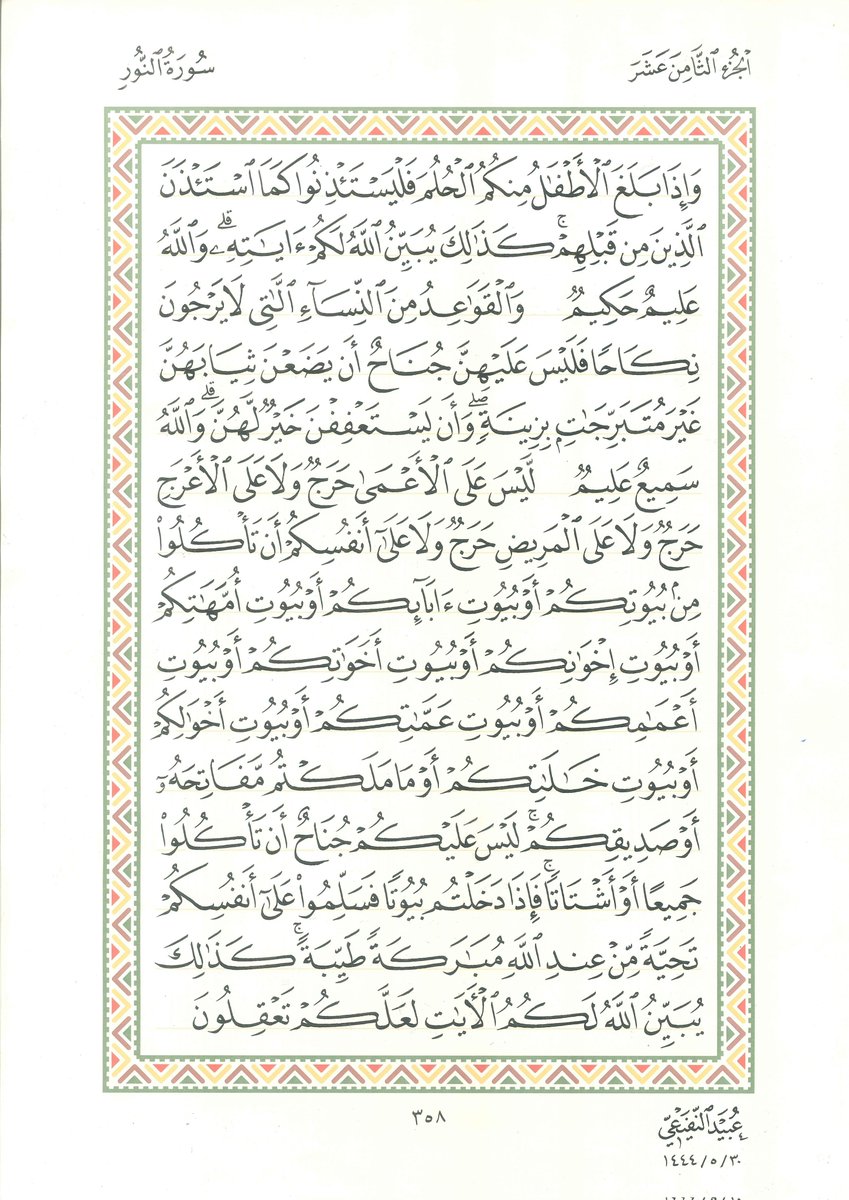 الجُزْءُ الثَّامِنَ عَشَرَ
سُورَةُ النُّورِ
وَإِذَا بَلَغَ ٱلْأَطْفَٰلُ مِنكُمُ ٱلْحُلُمَ فَلْيَسْتَـْٔذِنُوا۟ كَمَا ٱسْتَـْٔذَنَ
ٱلَّذِينَ مِن قَبْلِهِمْ ۚ كَذَٰلِكَ يُبَيِّنُ ٱللَّهُ لَكُمْ ءَايَٰتِهِۦ ۗ وَٱللَّهُ
عَلِيمٌ حَكِيمٌ وَٱلْقَوَٰعِدُ مِنَ ٱلنِّسَآءِ ٱلَّٰتِى لَا يَرْجُونَ
نِكَاحًا فَلَيْسَ عَلَيْهِنَّ جُنَاحٌ أَن يَضَعْنَ ثِيَابَهُنَّ
غَيْرَ مُتَبَرِّجَٰتٍۭ بِزِينَةٍ ۖ وَأَن يَسْتَعْفِفْنَ خَيْرٌ لَّهُنَّ ۗ وَٱللَّهُ
سَمِيعٌ عَلِيمٌ لَّيْسَ عَلَى ٱلْأَعْمَىٰ حَرَجٌ وَلَا عَلَى ٱلْأَعْرَجِ
حَرَجٌ وَلَا عَلَى ٱلْمَرِيضِ حَرَجٌ وَلَا عَلَىٰٓ أَنفُسِكُمْ أَن تَأْكُلُوا۟
مِنۢ بُيُوتِكُمْ أَوْ بُيُوتِ ءَابَآئِكُمْ أَوْ بُيُوتِ أُمَّهَٰتِكُمْ
أَوْ بُيُوتِ إِخْوَٰنِكُمْ أَوْ بُيُوتِ أَخَوَٰتِكُمْ أَوْ بُيُوتِ
أَعْمَٰمِكُمْ أَوْ بُيُوتِ عَمَّٰتِكُمْ أَوْ بُيُوتِ أَخْوَٰلِكُمْ
أَوْ بُيُوتِ خَٰلَٰتِكُمْ أَوْ مَا مَلَكْتُم مَّفَاتِحَهُۥٓ
أَوْ صَدِيقِكُمْ ۚ لَيْسَ عَلَيْكُمْ جُنَاحٌ أَن تَأْكُلُوا۟
جَمِيعًا أَوْ أَشْتَاتًا ۚ فَإِذَا دَخَلْتُم بُيُوتًا فَسَلِّمُوا۟ عَلَىٰٓ أَنفُسِكُمْ
تَحِيَّةً مِّنْ عِندِ ٱللَّهِ مُبَٰرَكَةً طَيِّبَةً ۚ كَذَٰلِكَ
يُبَيِّنُ ٱللَّهُ لَكُمُ ٱلْءَايَٰتِ لَعَلَّكُمْ تَعْقِلُونَ
٣٥٨
عُبَيْد النُّفَيْعِيّ
١٤٤٤/٥/٣٠